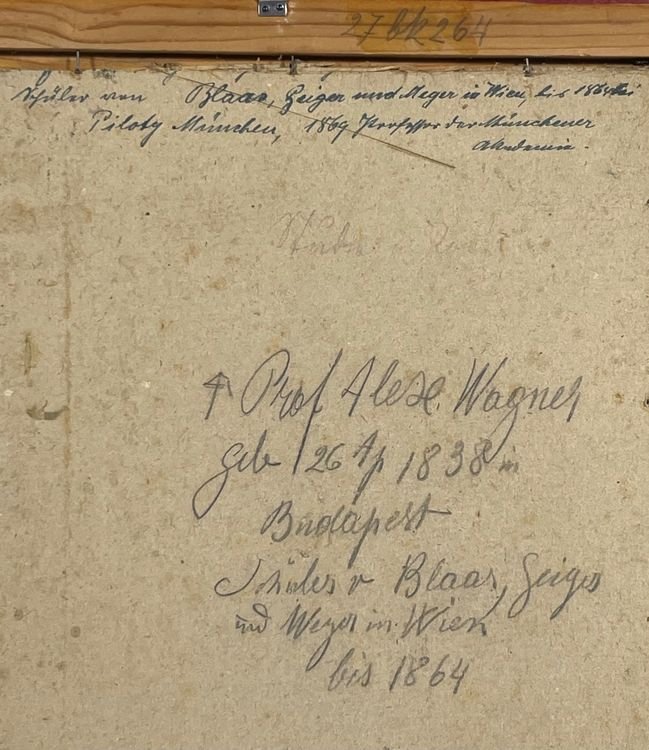 27 bk 264
Schüler von Blaas, Geiger und Meyer in Wien, bis 1864 bei
Piloty München, 1869 Professor der Münchener
Akademie.
Prof Alex. Wagner
geb 26 Ap 1838 in
Budapest
Schüler v Blaas, Geiger
und Meyer in Wien
bis 1864